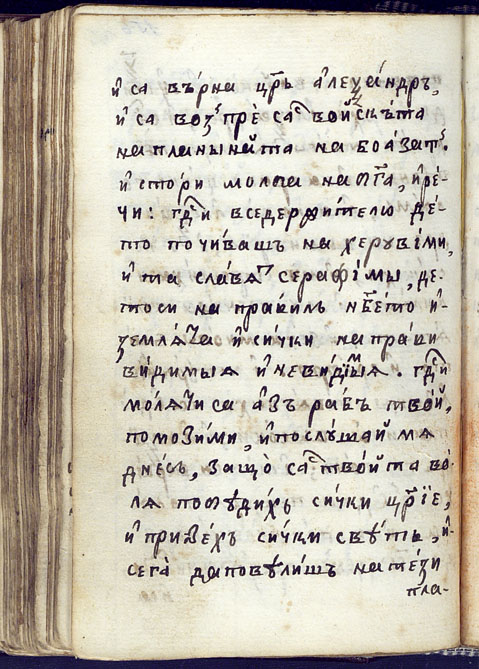 и҆ са върна цр҃ь а҆леѯа́ндръ,
и҆ са возпрѐ са войскѣта
на планына́та на боа́затъ.
и҆ стори молба на бг҃а, и҆ ре́-
чи: гдⷭ҇и вседержителю де́-
то почи́вашъ на херувіми,
и҆ та славѧтъ серафі́мы, де-
тоси на правиль нб҃ето и҆
землѧ́та и҆ си́чки на прави
ви́димыѧ и҆ неви́димыѧ. гдⷭ҇и
молѧ́ти са а҆зъ рабъ тво́й,
помозими, и҆ послу́шай мѧ
дне́съ, защо̀ са тво́йта во́-
лѧ побѣди́хъ си́чки цр҃їе,
и҆ приве́хъ си́чки свѣ́тъ, и҆
сега̀ да повѣли́шъ на те́зи
пла-